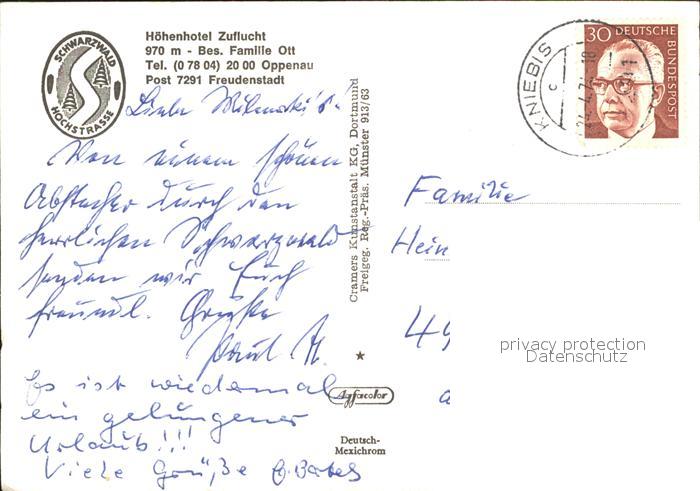 SCHWARZWALD
HOCHSTRASSE
Höhenhotel Zuflucht
970 m - Bes. Familie Ott
Tel. (0 78 04) 20 00 Oppenau
Post 7291 Freudenstadt
Von einem schönen
Abstecher durch den
herrlichen Schwarzwald
senden wir Euch
freundl. Grüße
Paul M.
Es ist wiedermal
ein gelungener
Urlaub!!!
Viele Grüße
Cramers Kunstanstalt KG, Dortmund
Freigeg. Reg.-Präs. Münster 913/63
Agfacolor
Deutsch-
Mexichrom
30 DEUTSCHE
BUNDESPOST
KNIEBIS
c
Familie
Hein
49
privacy protection
Datenschutz